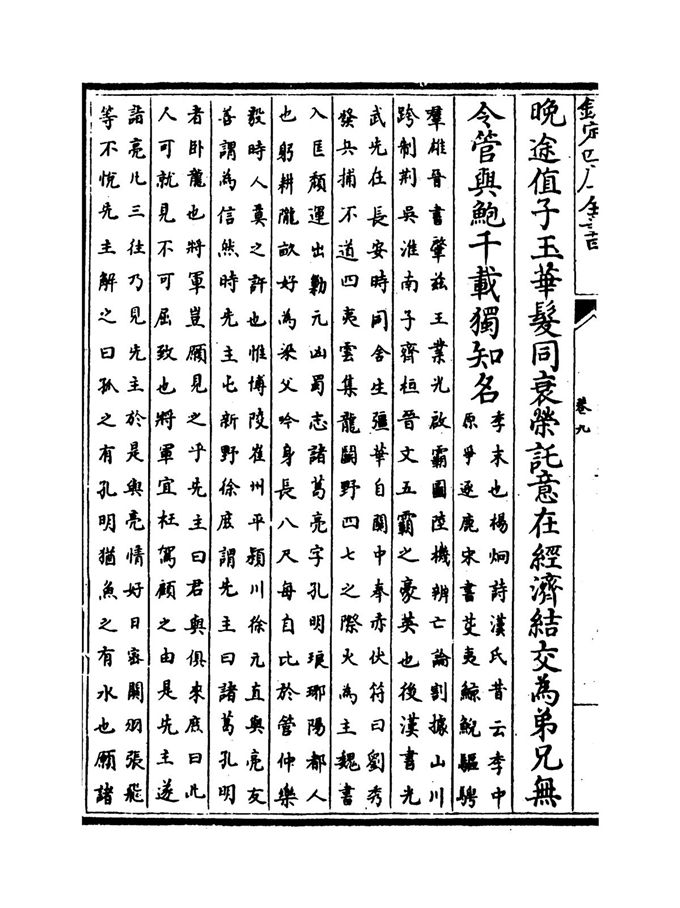 欽定四庫全書
卷九
晚途值子玉華髮同衰榮託意在經濟結交為弟兄無
令管與鮑千載獨知名
季末也楊炯詩漢氏昔云季中
原爭逐鹿宋書芟夷鯨鯢驅騁
羣雄晉書肇兹王業光啟霸圖陸機辨亡論割據山川
跨制荆吳淮南子齊桓晉文五霸之豪英也後漢書光
武先在長安時同舍生彊華自關中奉赤伏符曰劉秀
發兵捕不道四夷雲集龍鬭野四七之際火為主魏書
入匡頽運出勦元凶蜀志諸葛亮字孔明琅琊陽都人
也躬耕隴畝好為梁父吟身長八尺每自比於管仲樂
毅時人莫之許也惟博陵崔州平潁川徐元直與亮友
善謂為信然時先主屯新野徐庶謂先主曰諸葛孔明
者卧龍也將軍豈願見之乎先主曰君與俱來庶曰此
人可就見不可屈致也將軍宜枉駕顧之由是先主遂
詣亮凡三往乃見先主於是與亮情好日密關羽張飛
等不悦先主解之曰孤之有孔明猶魚之有水也願諸